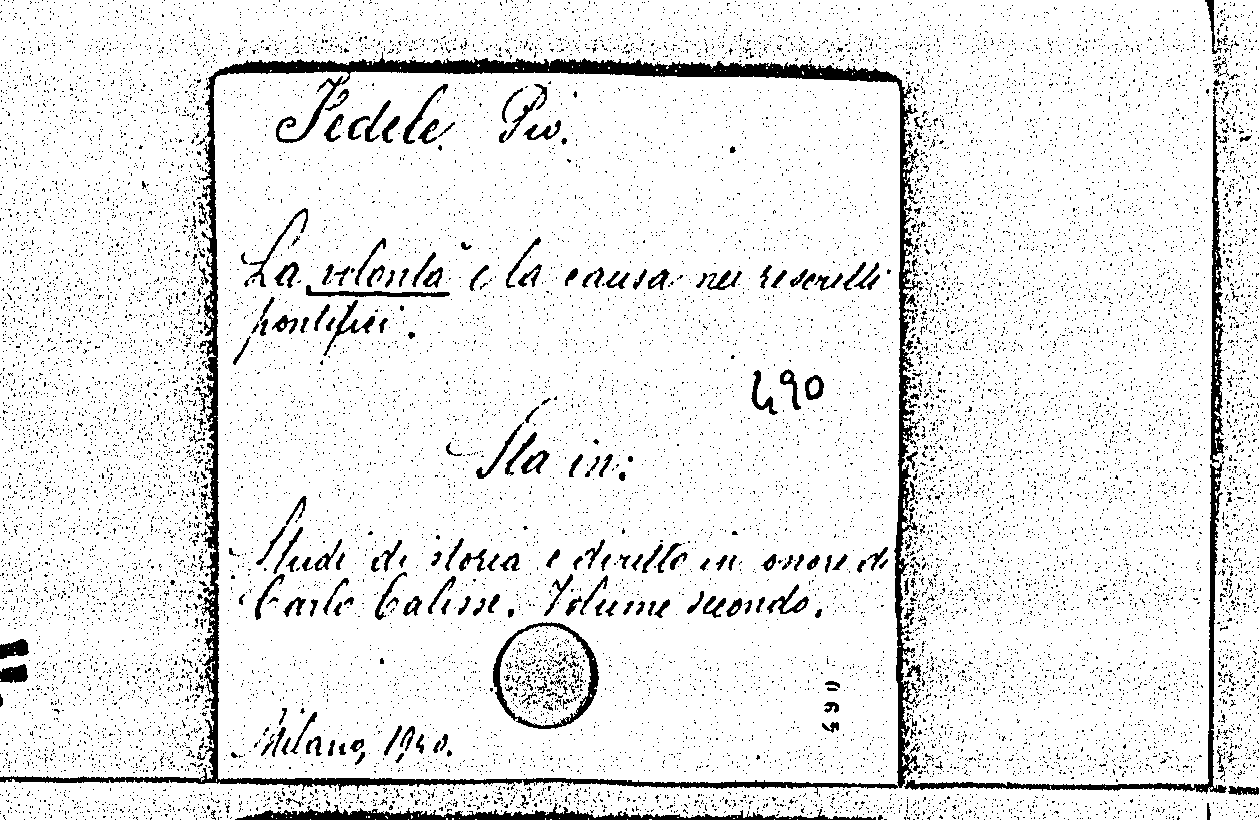 Fedele Pio.
La volontà e la causa nei rescritti
pontifici.
490
Sta in:
Studi di storia e diritto in onore di
Carlo Calisse. Volume secondo.
490
Milano, 1940.